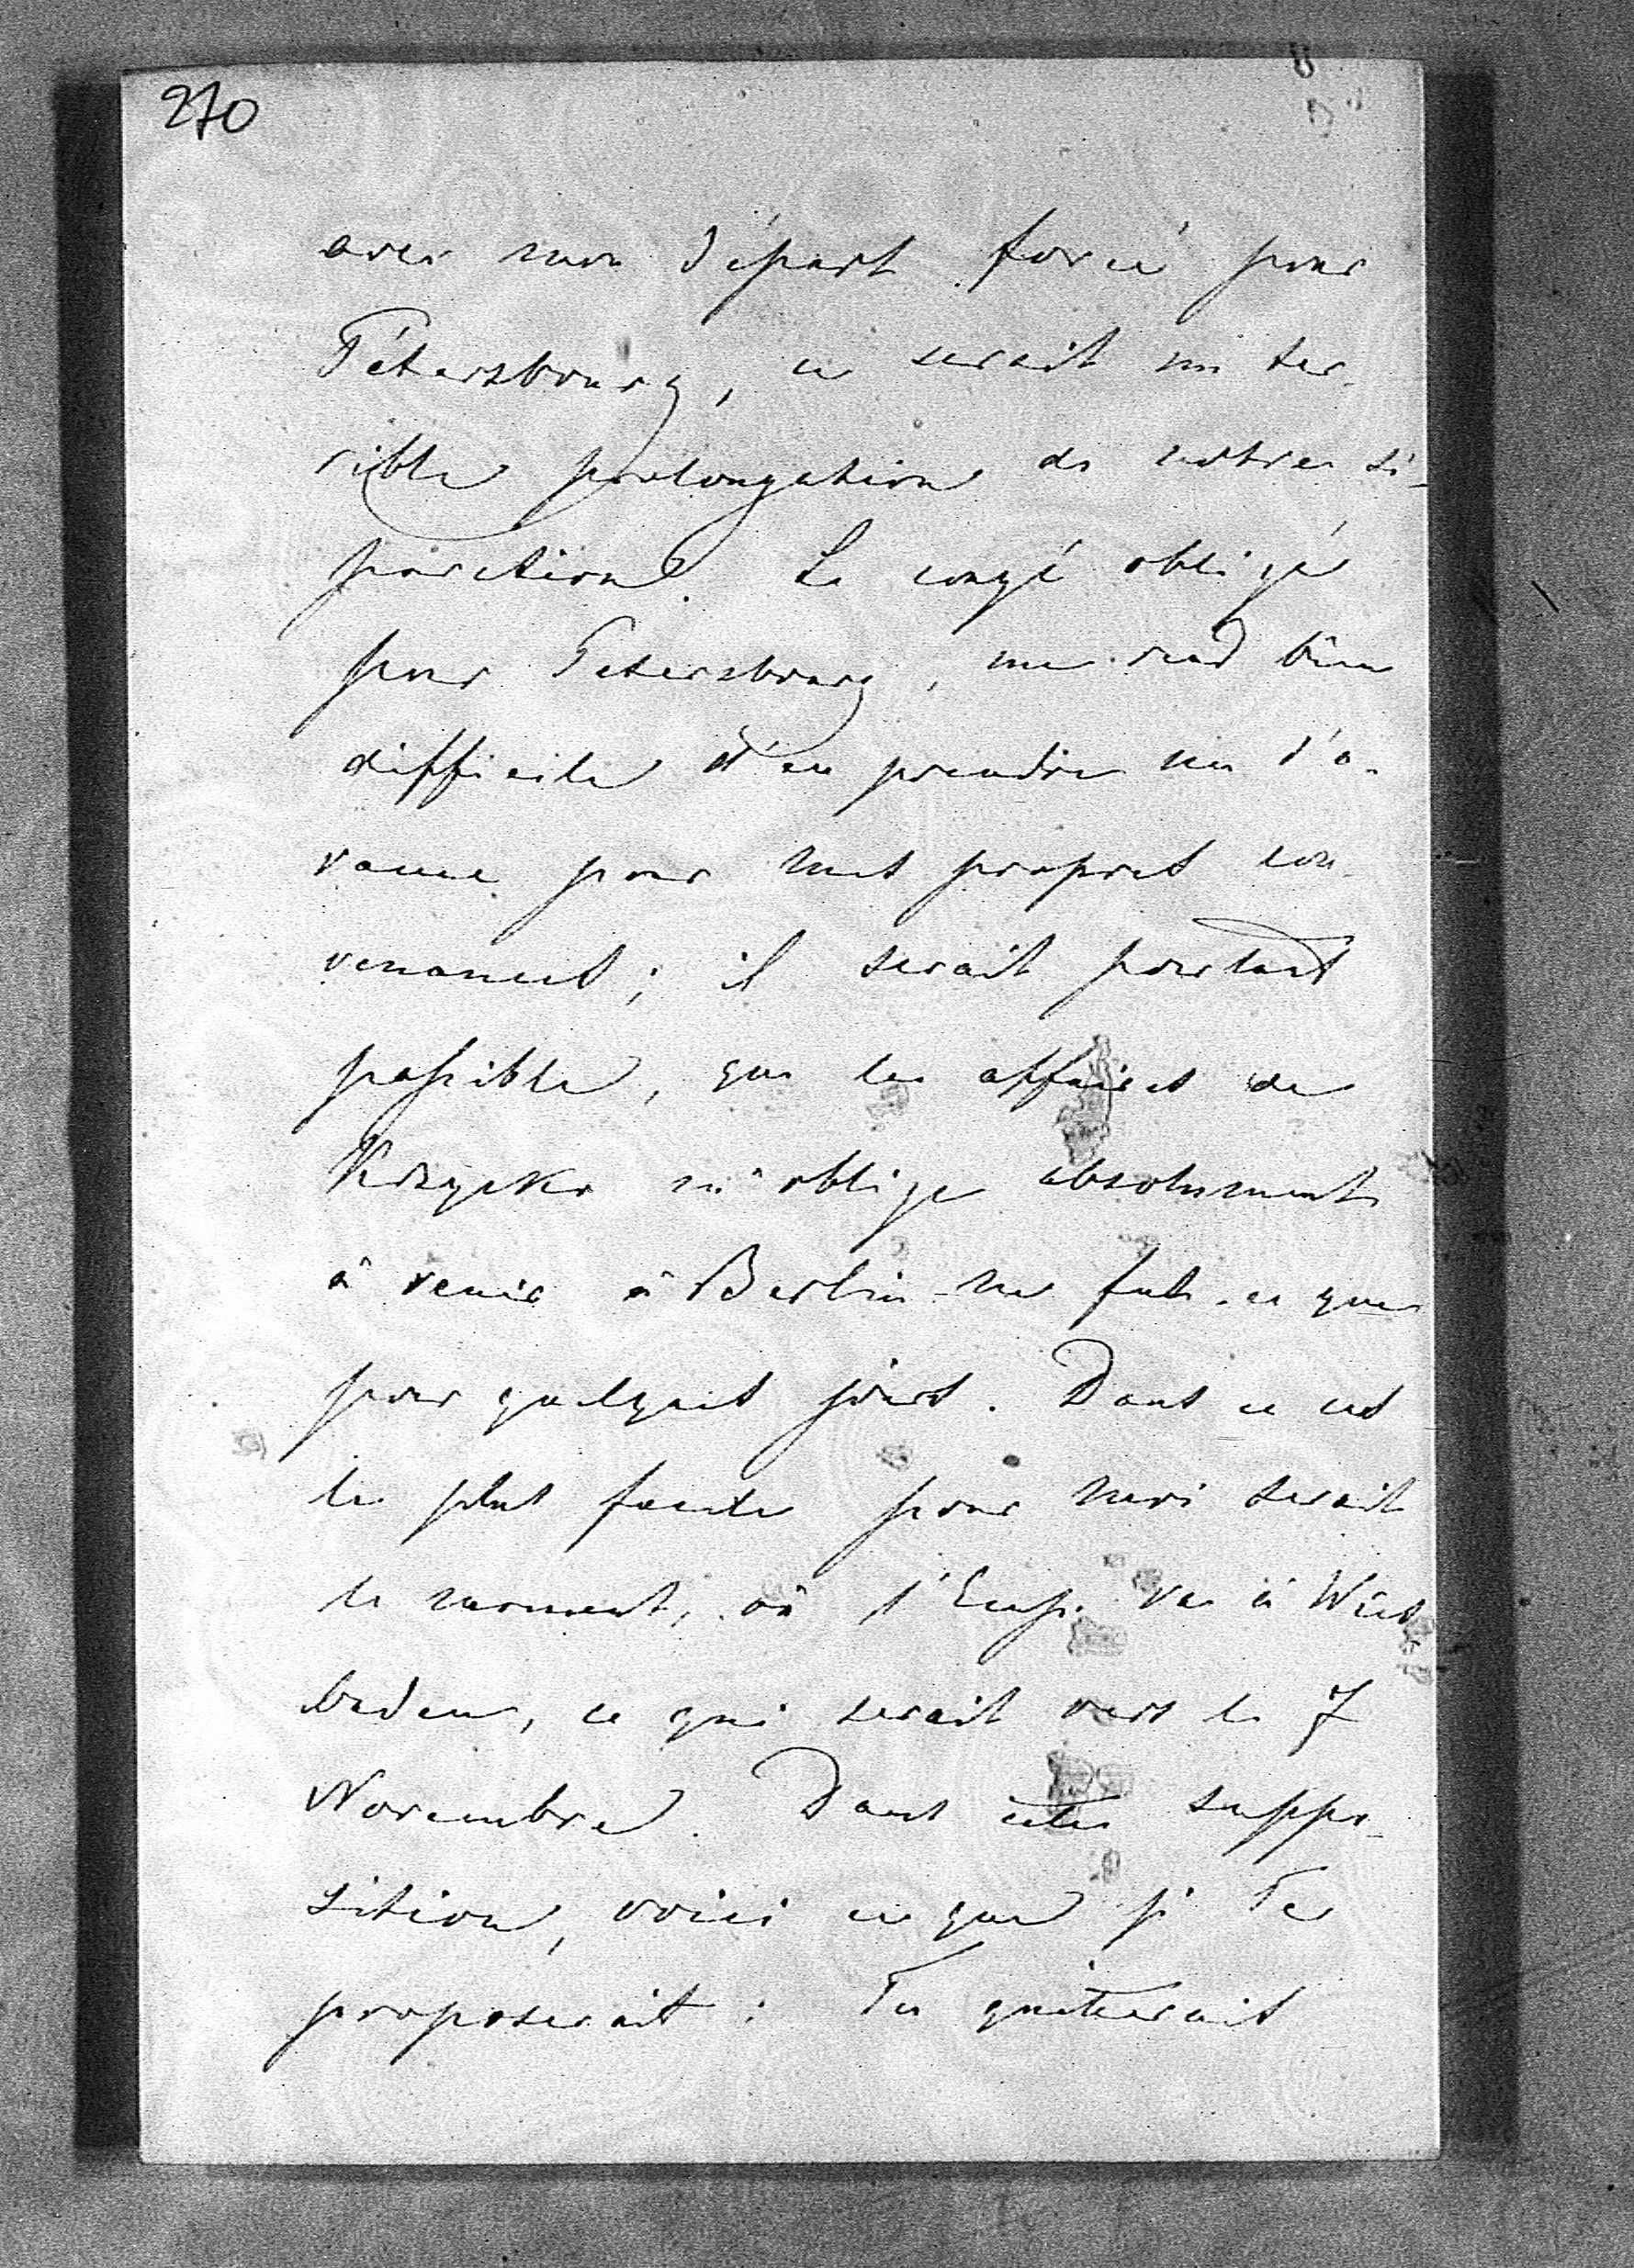 270
avec mon départ forcé pour
Pétersbourg, ce serait un ter-
rible prolongation de notre sé-
paration. Le congé obligé
pour Petersbourg, me rend bien
difficile d'en prendre un d'a-
vance pour mes propres con-
venances; il serait pourtant
possible, que les affaires de
m'oblige absolument
à venir à Berlin ne fut-ce que
pour quelques jours. Dans ce cas
le plus facile pour moi serait
le moment, où l'Emp. va à Wies-
baden, ce qui serait vers le 7
Novembre. Dans cette suppo-
sition, voici ce que je Te
proposerait: Tu quitterait